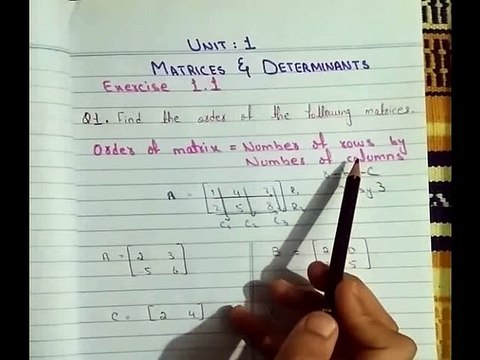 UNIT : 1
MATRICES & DETERMINANTS
Exercise 1.1
Q1. Find the order of the following matrices.
Order of matrix = Number of rows by
Number of columns
A = [1 4 7 R1
2 5 8 R2
C1 C2 C3
by 3
A = [2 3
5 6]
B = [2 0
5]
C = [2 4]